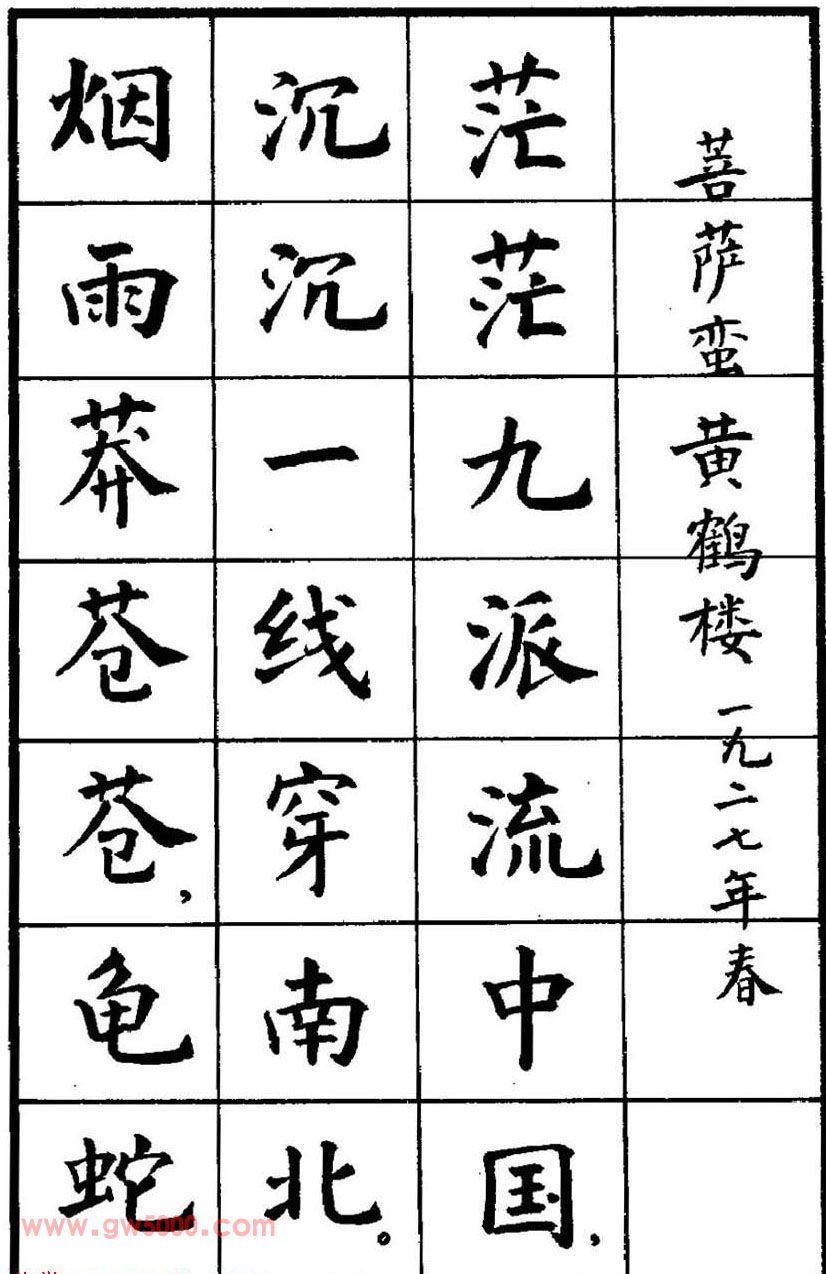 菩萨蛮 黄鹤楼 一九二七年春
茫茫九派流中国，
沉沉一线穿南北。
烟雨莽苍苍，龟蛇
www.gw5000.com